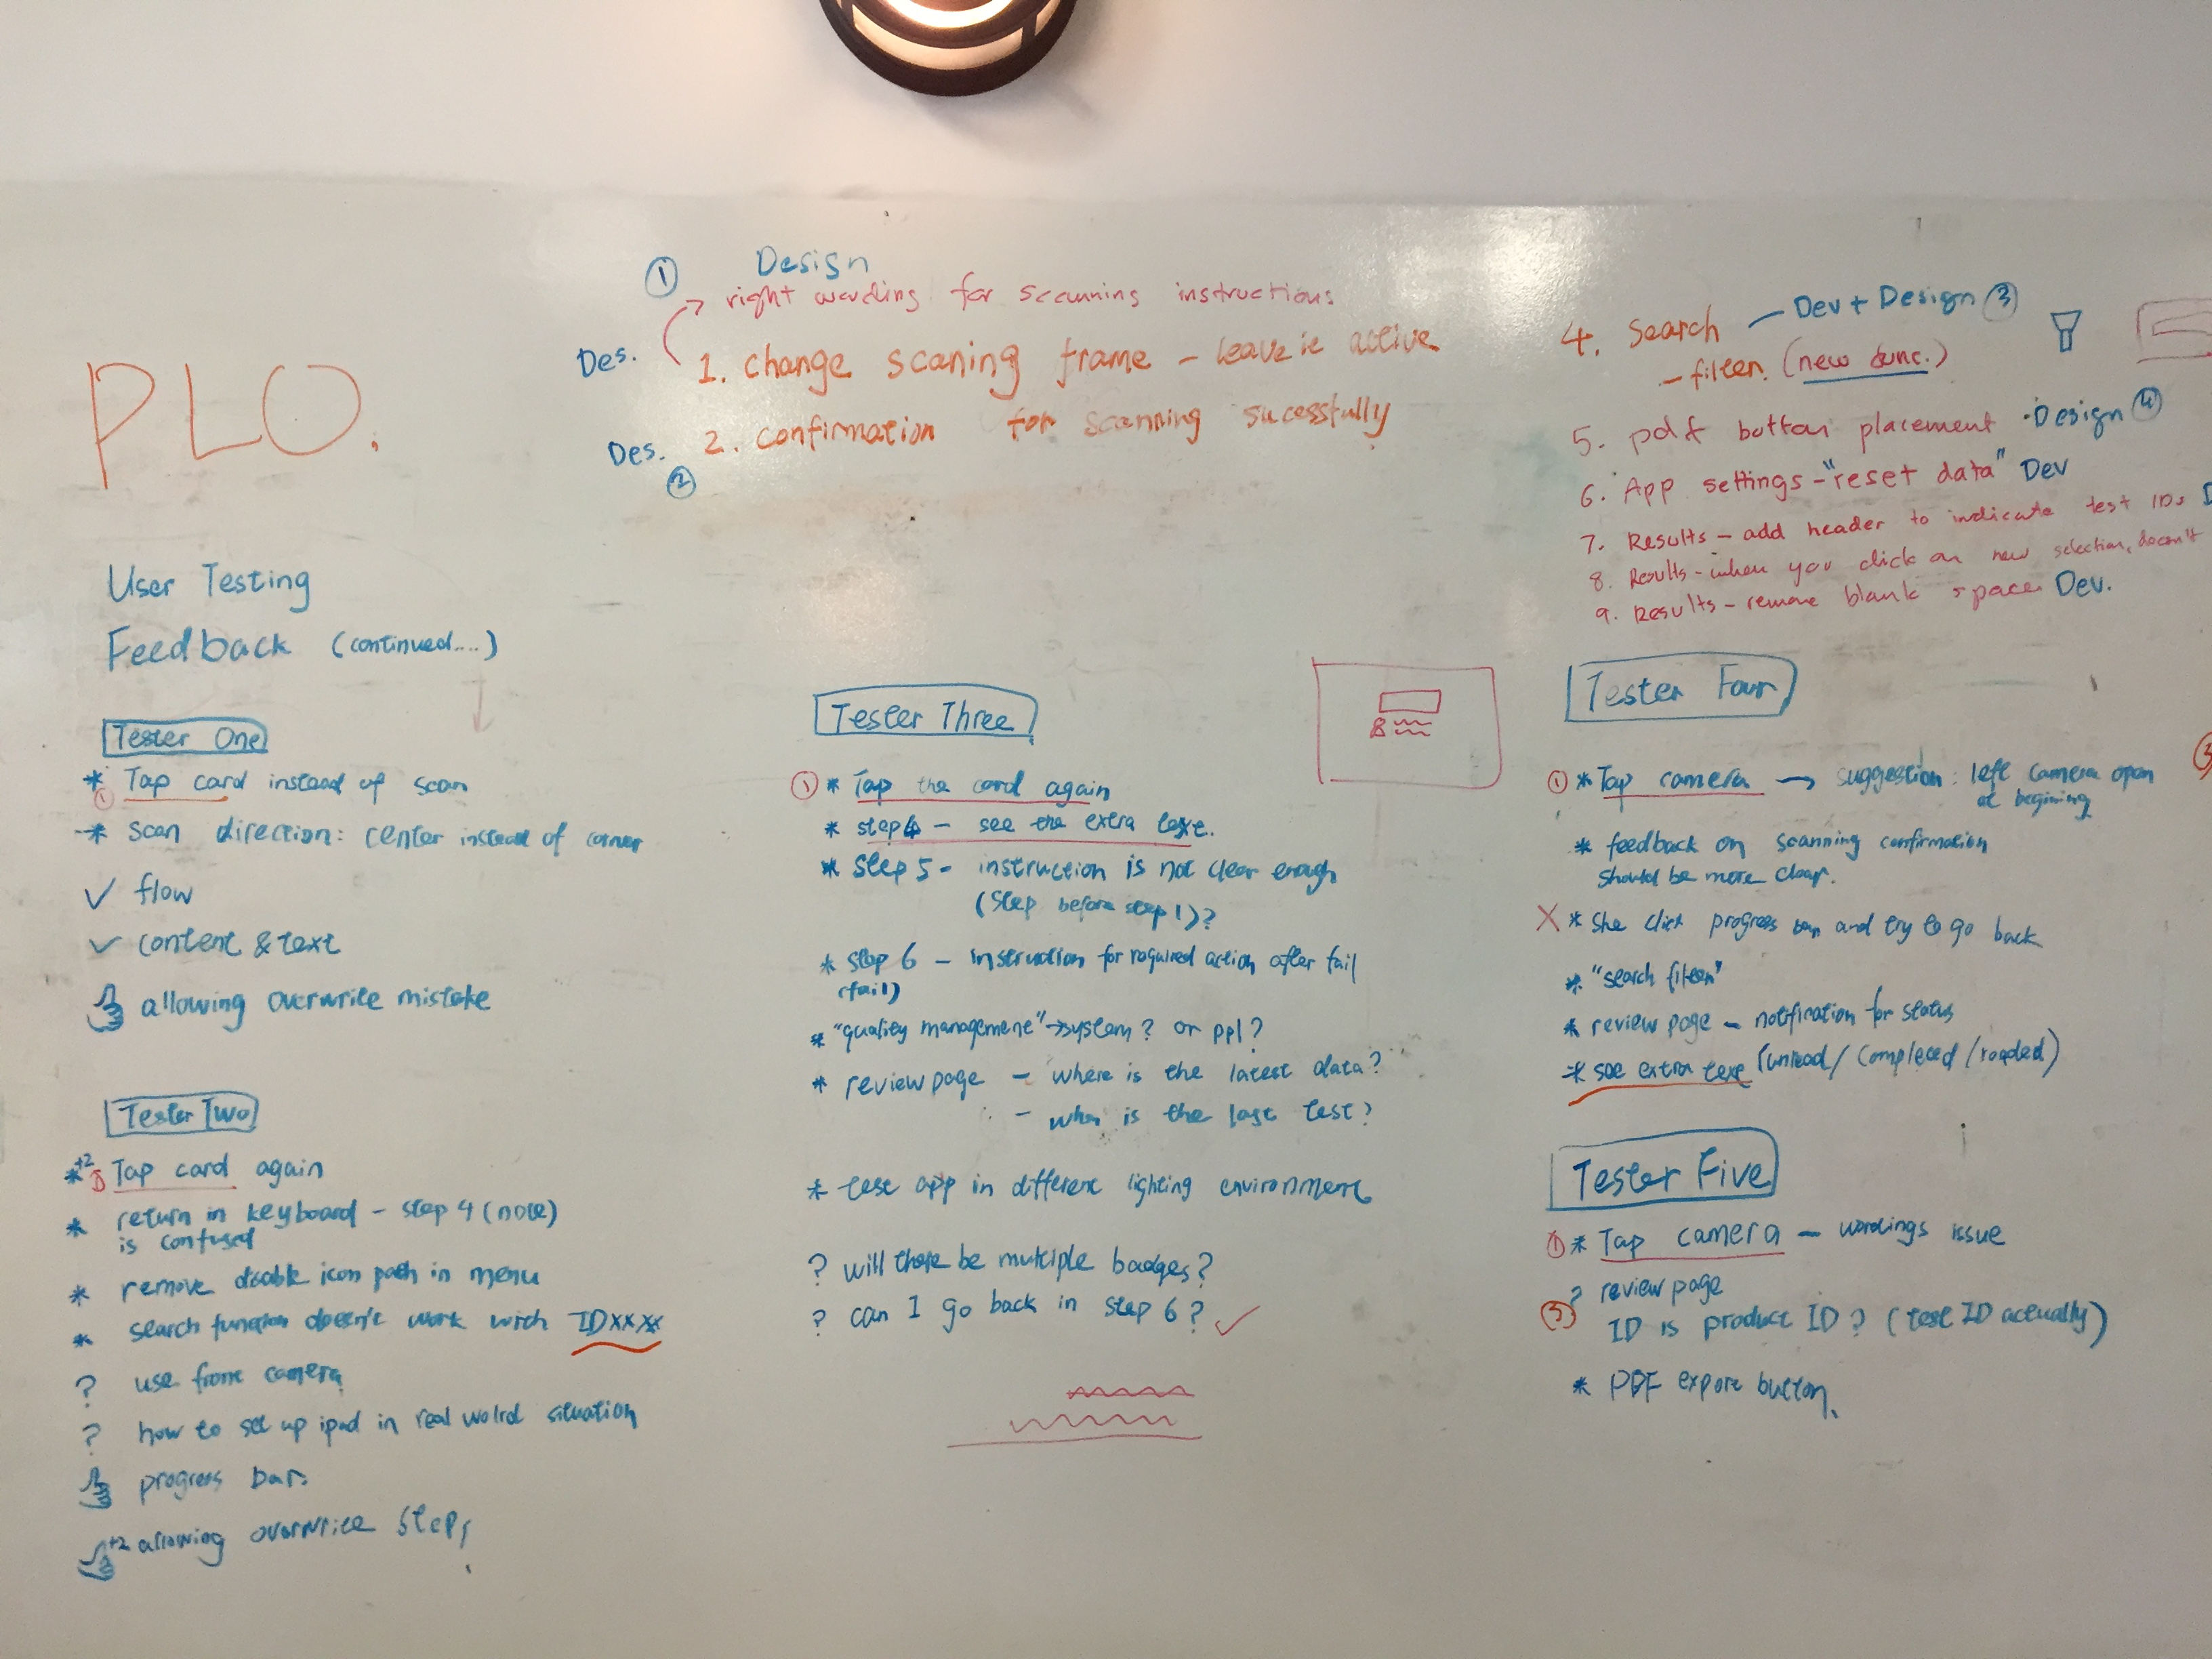 PLO.
User Testing
Feedback (continued....)
① Design
right wording for scanning instructions
Des. 1. change scaning frame - leave it active
Des. 2. confirmation for scanning sucessfully
②
4. Search - Dev + Design ③
- filter. (new func.)
5. pdf button placement - Design ④
6. App settings - "reset data" Dev
7. Results - add header to indicate test IDs
8. Results - when you click on new selection, doesn't
9. Results - remove blank space Dev.
Tester One
* ① Tap card instead of scan
* scan direction: center instead of corner
✓ flow
✓ content & text
allowing overwrite mistake
Tester Two
* +2 ① Tap card again
* return in keyboard - step 4 (note)
is confused
* remove disable icon path in menu
* search function doesn't work with IDxxxx
? use front camera
? how to set up ipad in real wolrd situation
progress bar.
+2 allowing overwrite step,
Tester Three
① * Tap the card again
* step 4 - see the extra text.
* step 5 - instruction is not clear enough
(step before step 1)?
* step 6 - instruction for required action after fail
(fail)
* "quality management" → system? or ppl?
* review page - where is the latest data?
- when is the last test?
* test app in different lighting environment
? will there be multiple badges?
? can I go back in step 6? ✓
Tester Four
① * Tap camera → suggestion: left camera open
at begining
* feedback on scanning confirmation
should be more clear.
X * she click progress bar and try to go back
* "search filter"
* review page - notification for status
* see extra text (unread/completed/readed)
Tester Five
① * Tap camera - wordings issue
? review page
③ ID is product ID? (test ID actually)
* PDF export button.